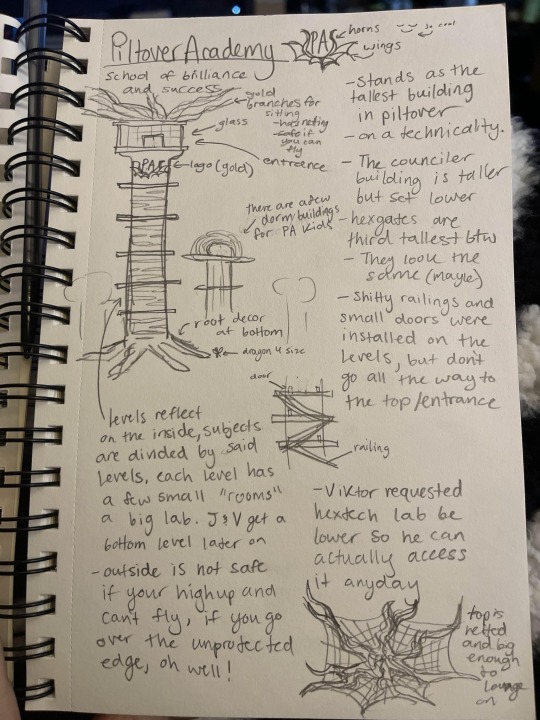 Piltover Academy
School of brilliance
and success
PAS
horns
wings
so cool
gold
branches for
sitting
- has neting
- safe if
you can
fly
glass
entreence
PAS
logo (gold)
there are a few
dorm buildings
for PA kids
root decor
at bottom
dragon 4 size
- Stands as the
tallest building
in piltover
- on a technicality.
- The counciler
building is taller
but set lower
- hexgates are
third tallest btw
- They look the
same (maybe)
- Shitty railings and
small doors were
installed on the
levels, but dont
go all the way to
the top/entrance
door
railing
levels reflect
on the inside, subjects
are divided by said
levels, each level has
a few small "rooms"
a big lab. J&V get a
bottom level later on
- outside is not safe
if your high up and
cant fly, if you go
over the unprotected
edge, oh well!
- Viktor requested
hextech lab be
lower so he can
actually access
it anyday
top is
netted
and big
enough
to
lounge
on